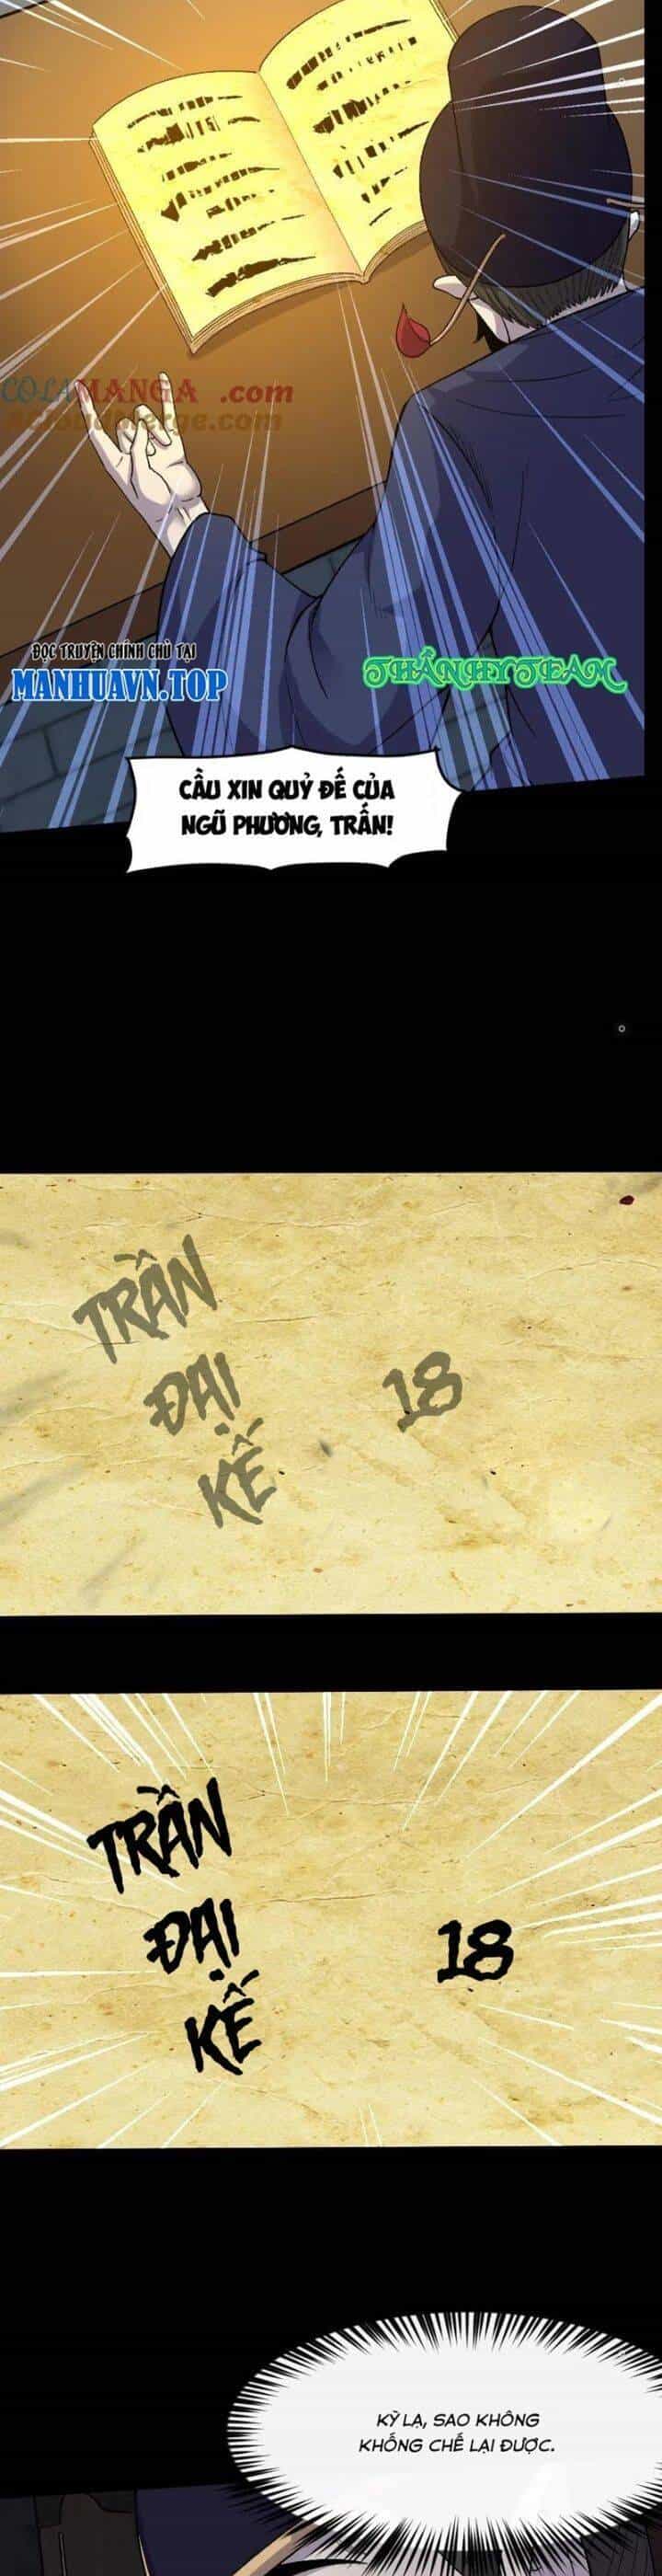 COLAMANGA.com
Acloudmerge.com
ĐỌC TRUYỆN CHÍNH CHỦ TẠI
MANHUAVN.TOP
THẦN HY TEAM
CẦU XIN QUỶ ĐẾ CỦA
NGŨ PHƯƠNG, TRẤN!
TRẦN
ĐẠI
KẾ
18
TRẦN
ĐẠI
KẾ
18
KỲ LẠ, SAO KHÔNG
KHỐNG CHẾ LẠI ĐƯỢC.